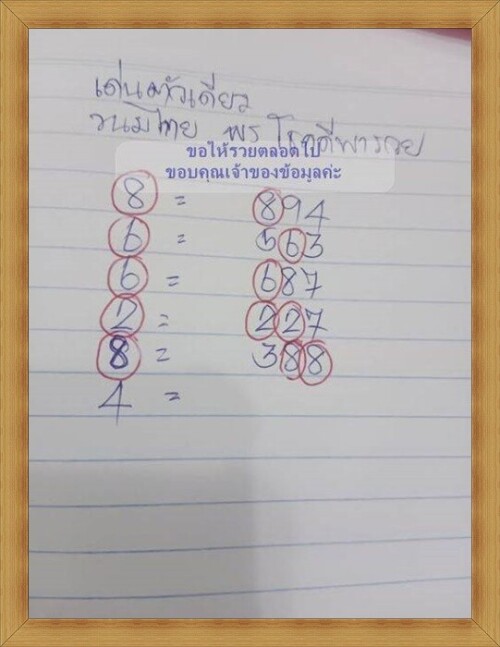 เด่นตัวเดียว
วนมิไทย พร โชคดีพารวย
ขอให้รวยตลอดไป
ขอบคุณเจ้าของข้อมูลค่ะ
8 = 894
6 = 563
6 = 687
2 = 227
8 = 388
4 =